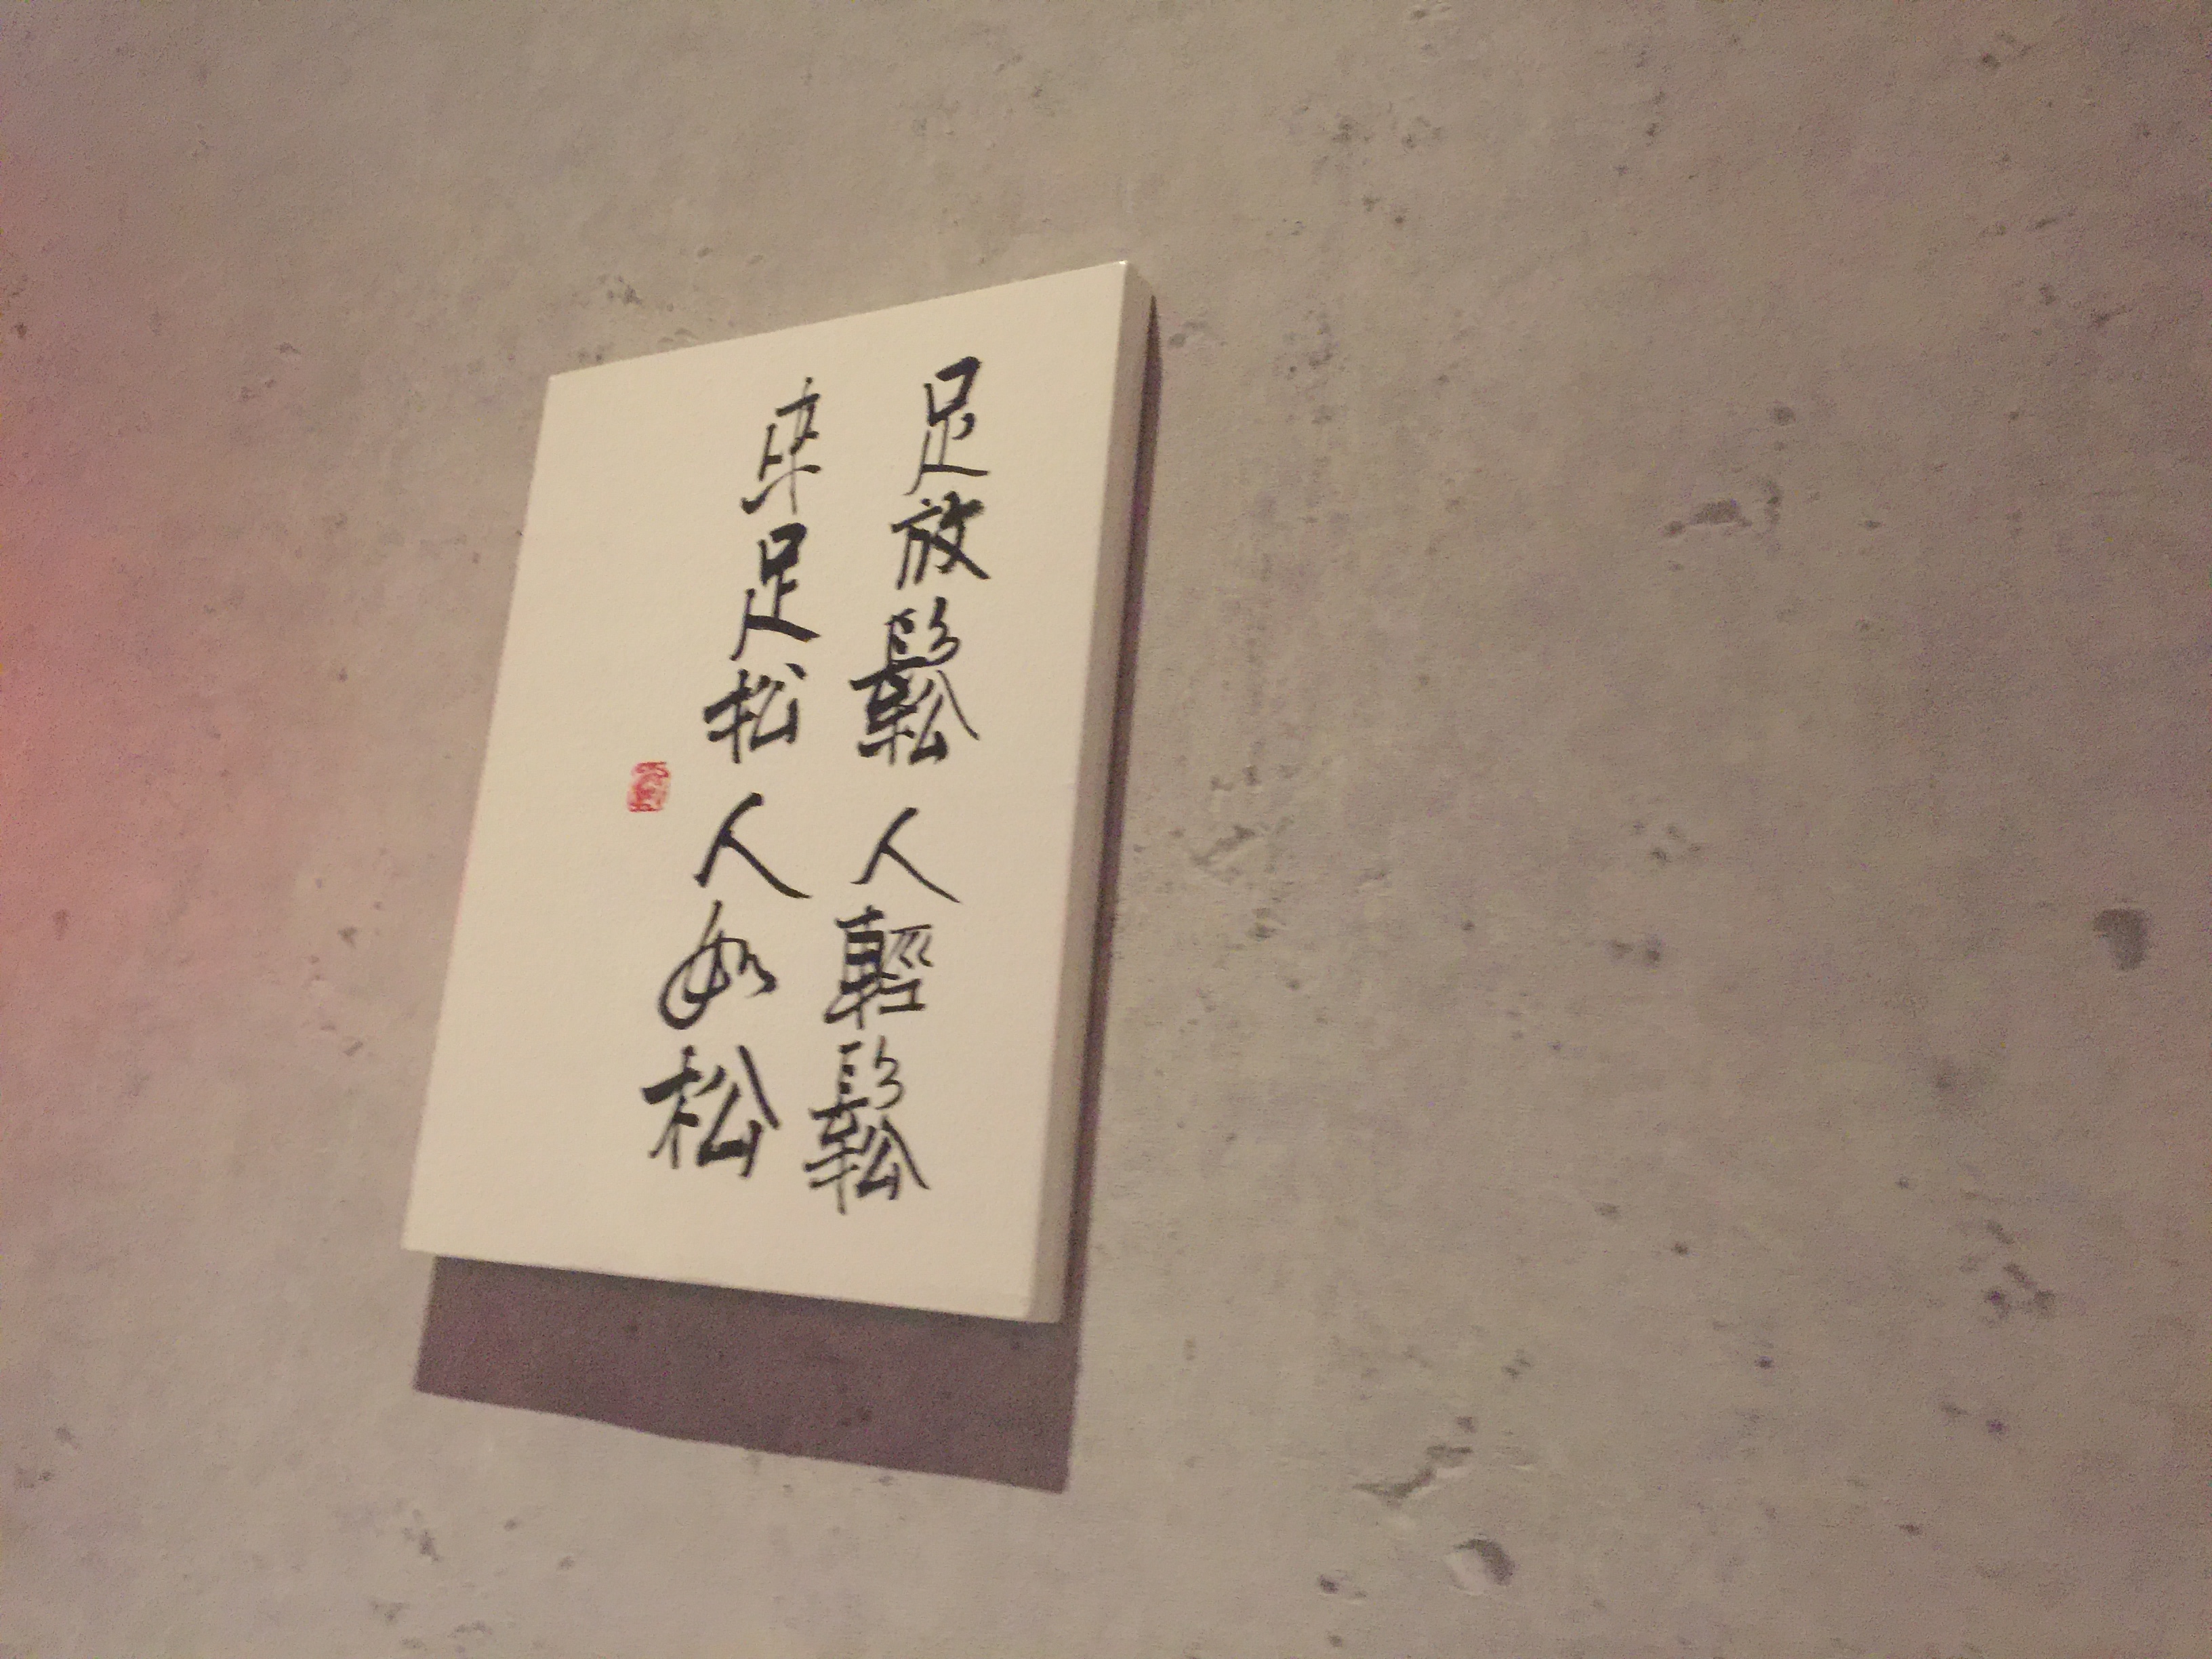 足放鬆人輕鬆
足松人如松